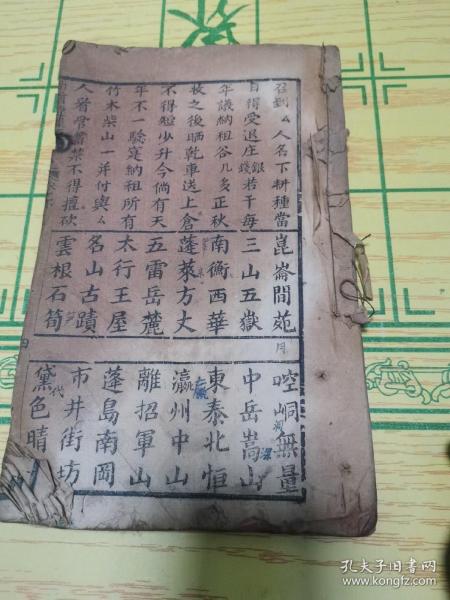 召到厶人名下耕種當
日得受退庄銀錢若干每
年議納租谷几多正秋
收之後晒乾車送上倉
不得短少升合倘有天
年不一驗寔納租所有
竹木柴山一并付與厶
人畜骨當禁不得擅砍
崑崙閬苑
三山五嶽
南衡西華
蓬萊方丈
五雷岳麓
太行王屋
名山古蹟
雲根石筍
崆峒無量
中岳嵩山
東泰北恒
瀛州中山
離招軍山
蓬島南岡
市井街坊
黛色晴
孔夫子旧书网
www.kongfz.com